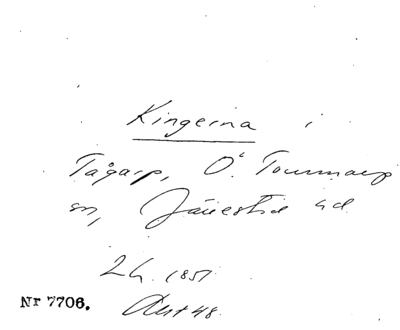 Kingerna i
Tågarp, Ö. Tommarp
sn, Järrestad hd
2 h. 1851
Nr 7706.